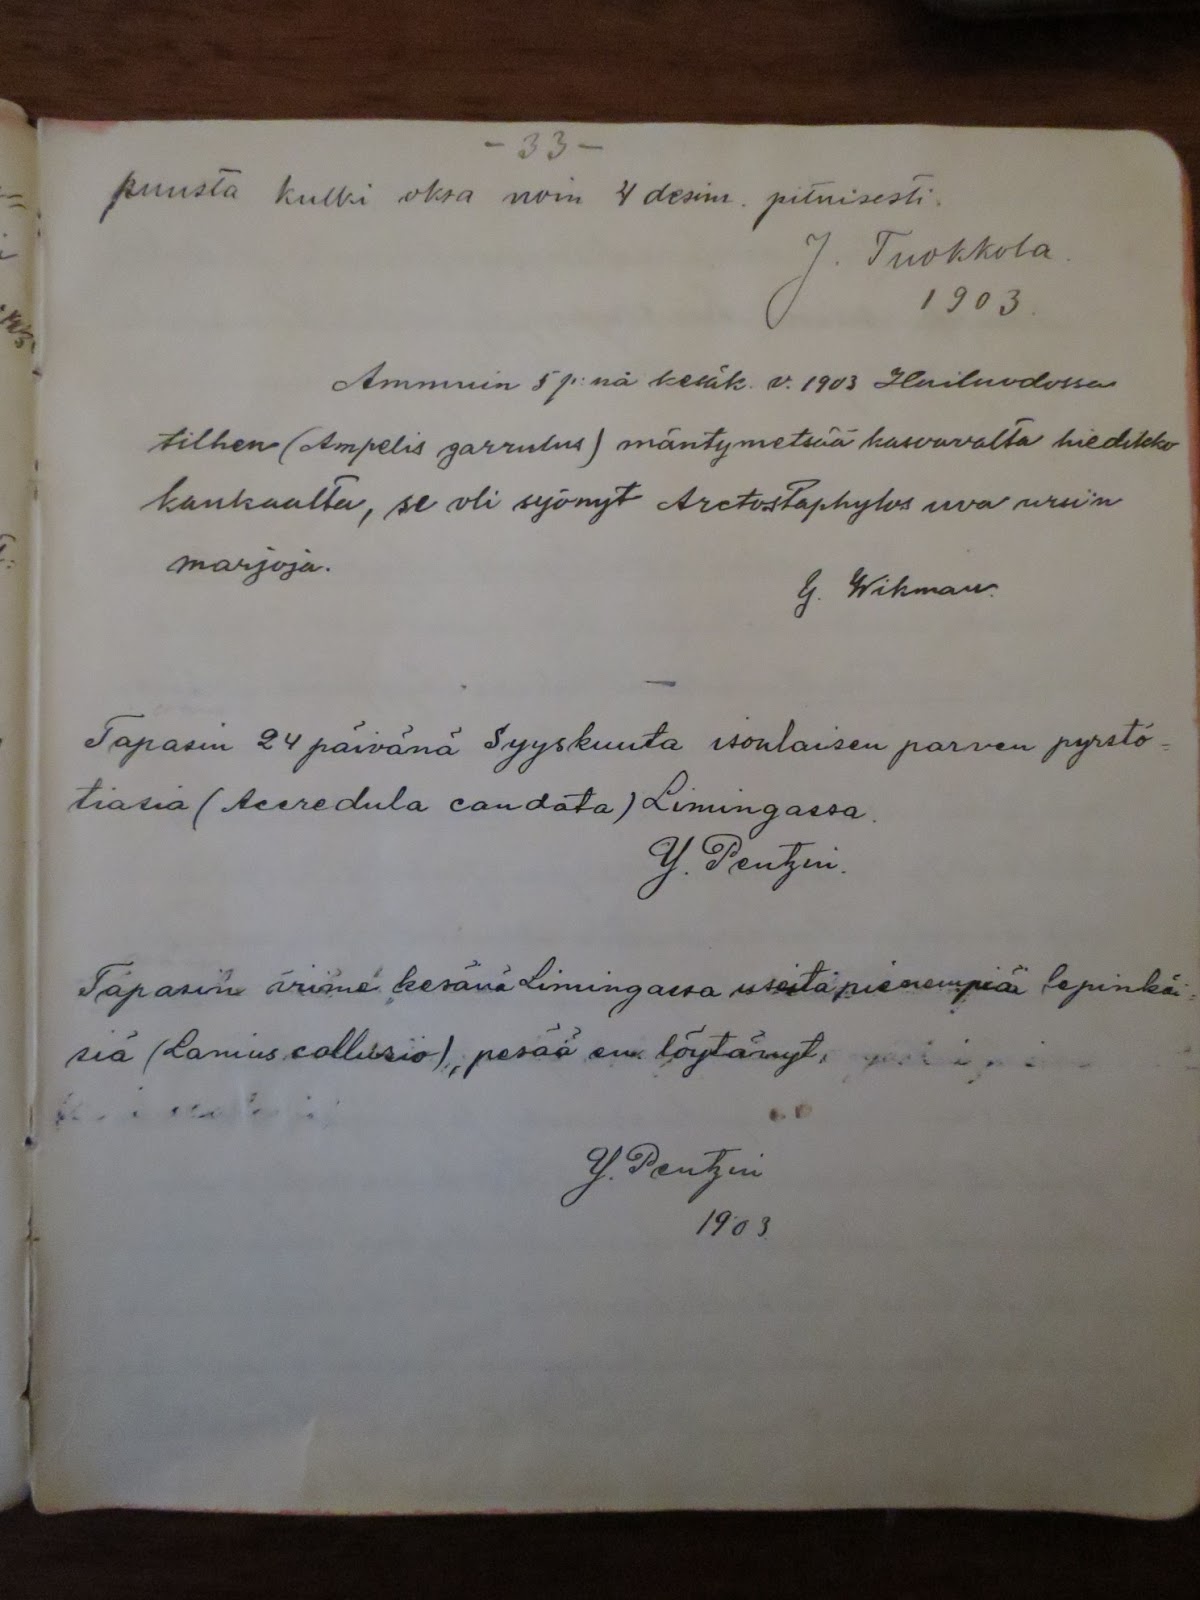 - 33 -
puusta kulki oksa noin 4 desim. pituisesti.
J. Tuokkola.
1903.
Ammuin 5 p:nä kesäk. v. 1903 Hailuodossa
tilhen (Ampelis garrulus) mäntymetsää kasvavalta hiedikko
kankaalta, se oli syönyt Arctostaphylos uva ursi'n
marjoja.
G. Wikman.
Tapasin 24 päivänä Syyskuuta isonlaisen parven pyrstö-
tiasia (Acredula caudata) Limingassa.
Y. Pentzin.
Tapasin viime kesänä Limingassa useita pienempiä lepinkäi-
siä (Lanius collurio), pesää en löytänyt,
Y. Pentzin
1903